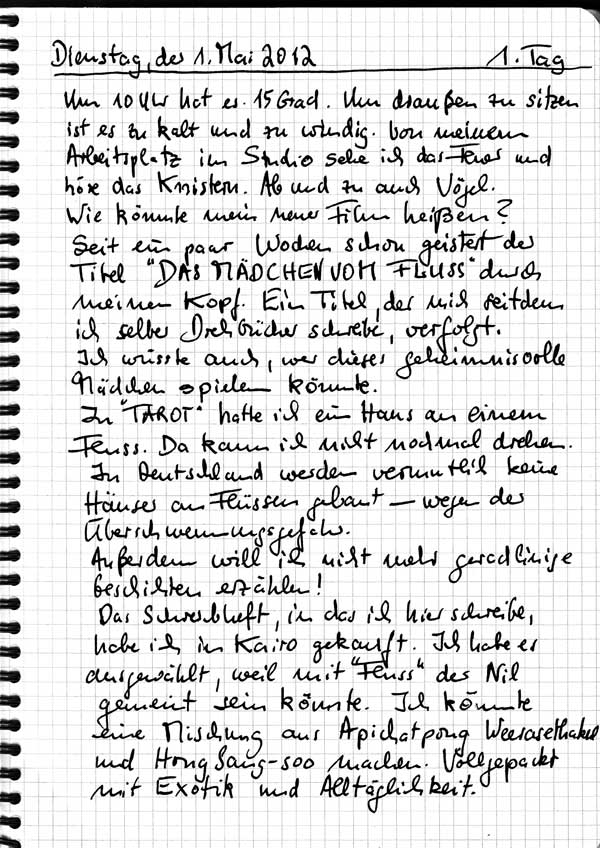 Dienstag, der 1. Mai 2012 1. Tag
Um 10 Uhr hat es 15 Grad. Um draußen zu sitzen
ist es zu kalt und zu windig. Von meinem
Arbeitsplatz im Studio sehe ich das Feuer und
höre das Knistern. Ab und zu auch Vögel.
Wie könnte mein neuer Film heißen?
Seit ein paar Wochen schon geistert der
Titel "DAS MÄDCHEN VOM FLUSS" durch
meinen Kopf. Ein Titel, der mich seitdem
ich selber Drehbücher schreibe, verfolgt.
Ich wüsste auch, wer dieses geheimnisvolle
Mädchen spielen könnte.
In "TAROT" hatte ich ein Haus an einem
Fluss. Da kann ich nicht nochmal drehen.
In Deutschland werden vermutlich keine
Häuser an Flüssen gebaut — wegen der
Überschwemmungsgefahr.
Außerdem will ich nicht mehr geradlinige
Geschichten erzählen!
Das Schreibheft, in das ich hier schreibe,
habe ich in Kairo gekauft. Ich habe es
ausgewählt, weil mit "Fluss" der Nil
gemeint sein könnte. Ich könnte
eine Mischung aus Apichatpong Weerasethakul
und Hong Sang-soo machen. Vollgepackt
mit Exotik und Alltäglichkeit.